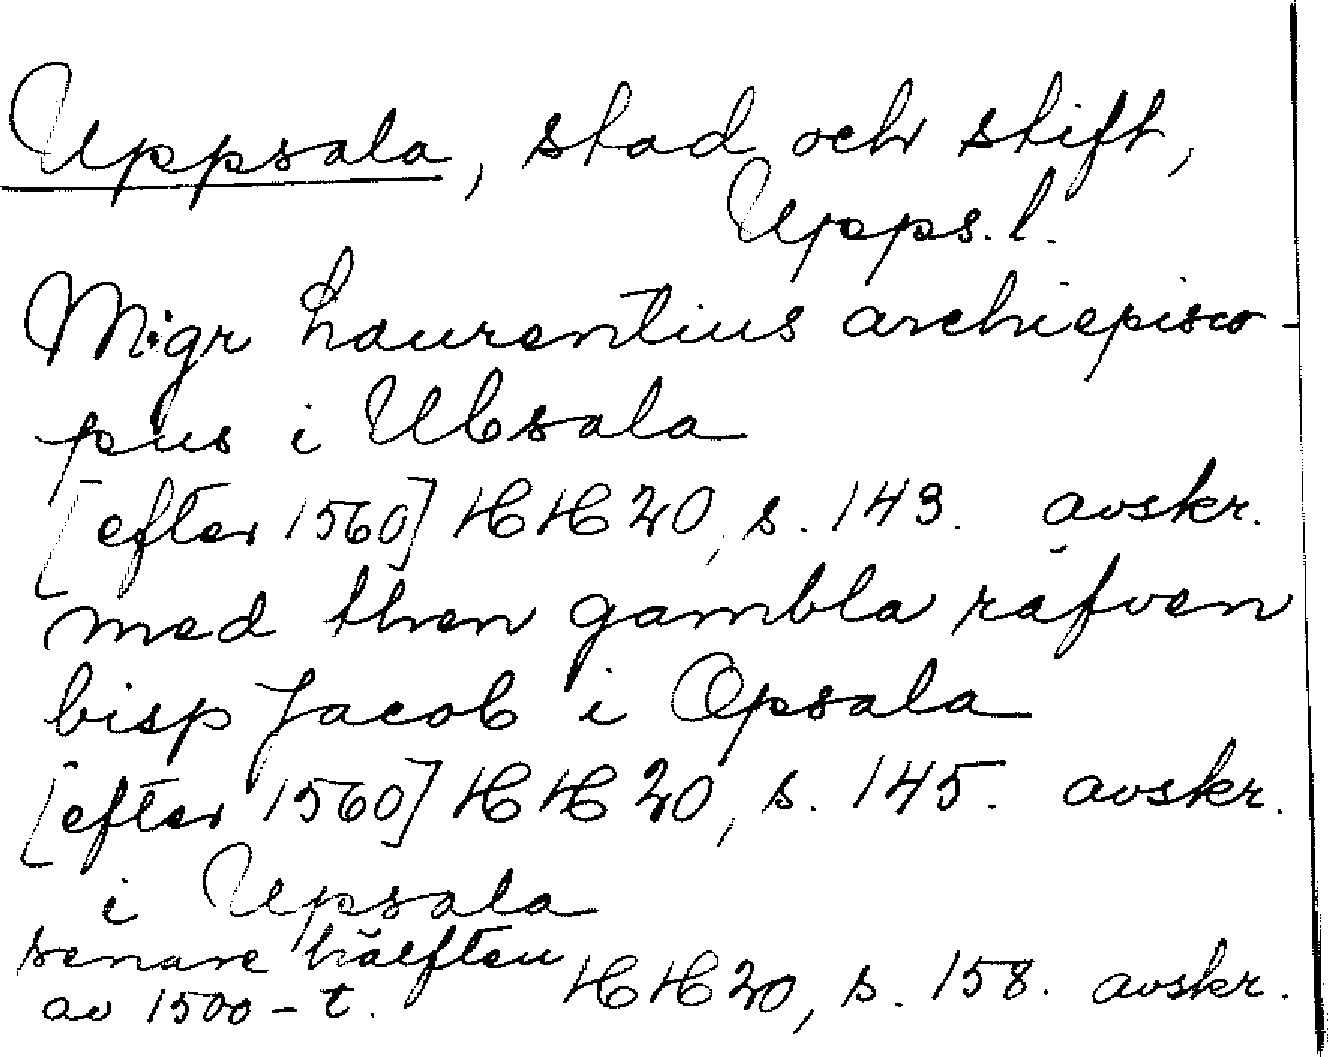 Uppsala, stad och stift,
Upps. l.
M:gr Laurentius archiepisco-
pus i Ubsala
[efter 1560] HH 20, s. 143. avskr.
med then gambla räfven
bisp Jacob i Opsala
[efter 1560] HH 20, s. 145. avskr.
i Upsala
senare hälften
av 1500-t. HH 20, s. 158. avskr.